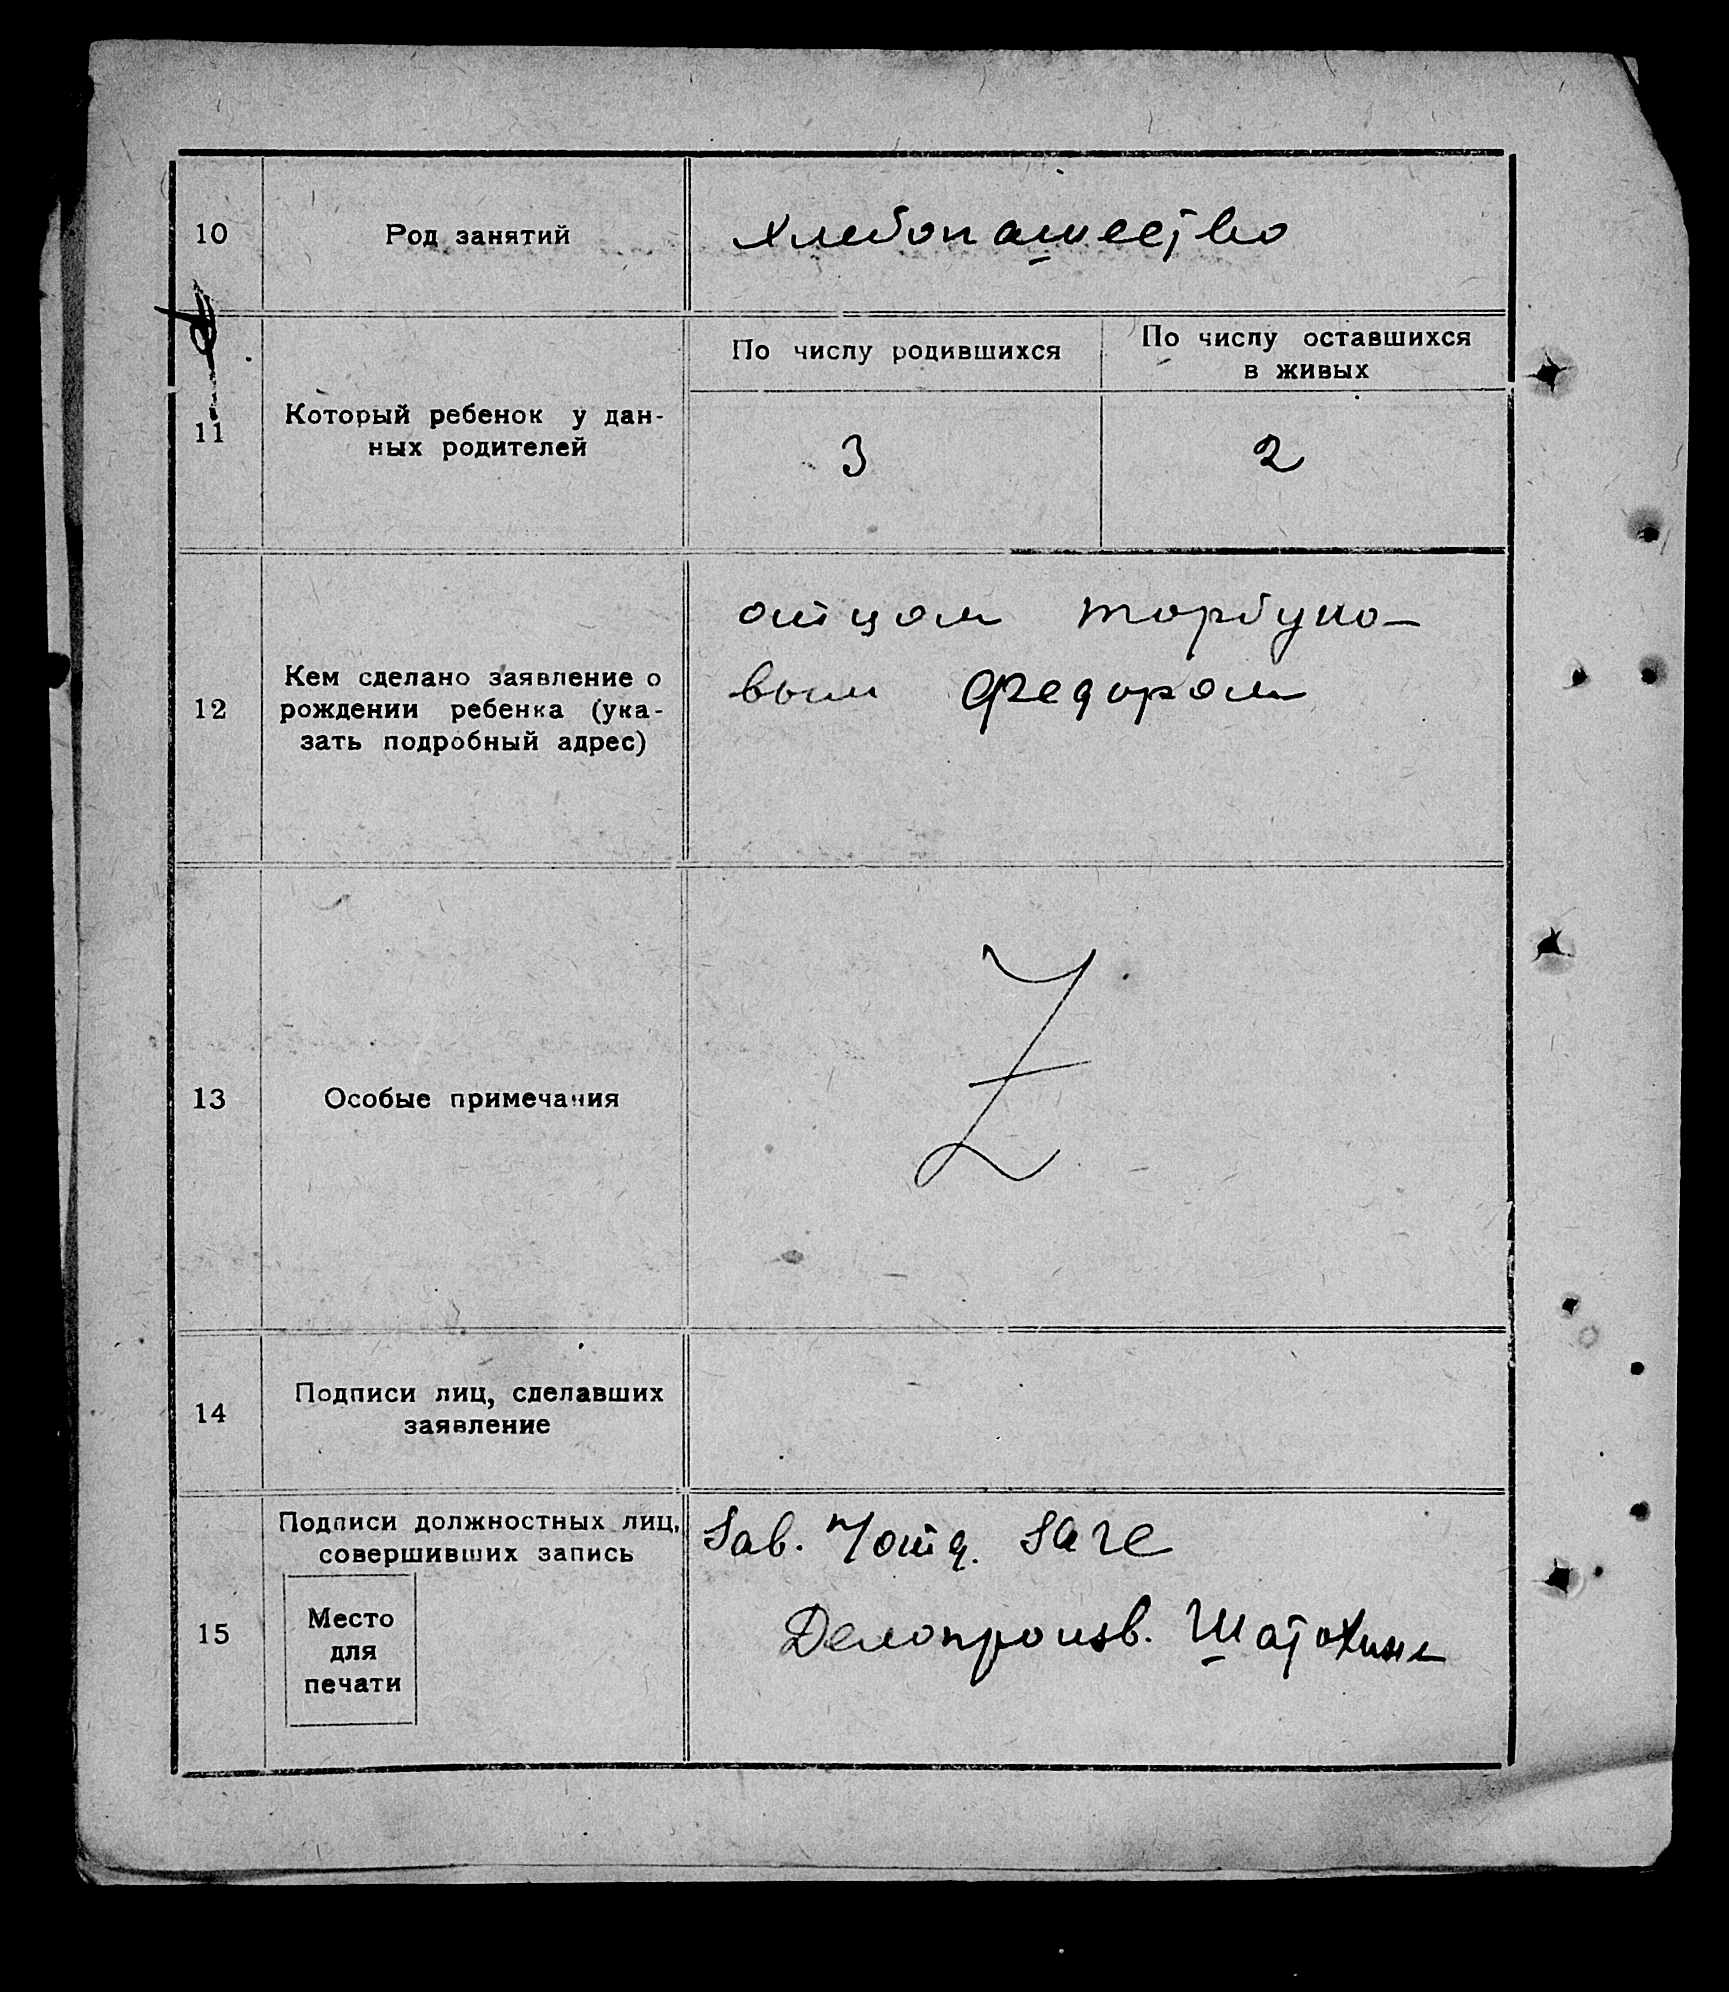 10
Род занятий
хлебопашество
11
Который ребенок у дан-
ных родителей
По числу родившихся
По числу оставшихся
в живых
3
2
12
Кем сделано заявление о
рождении ребенка (ука-
зать подробный адрес)
отцом Торбуно-
вым Федором
13
Особые примечания
Z
14
Подписи лиц, сделавших
заявление
15
Подписи должностных лиц,
совершивших запись
Место
для
печати
Зав. Загс
Делопроизв. Шатохина